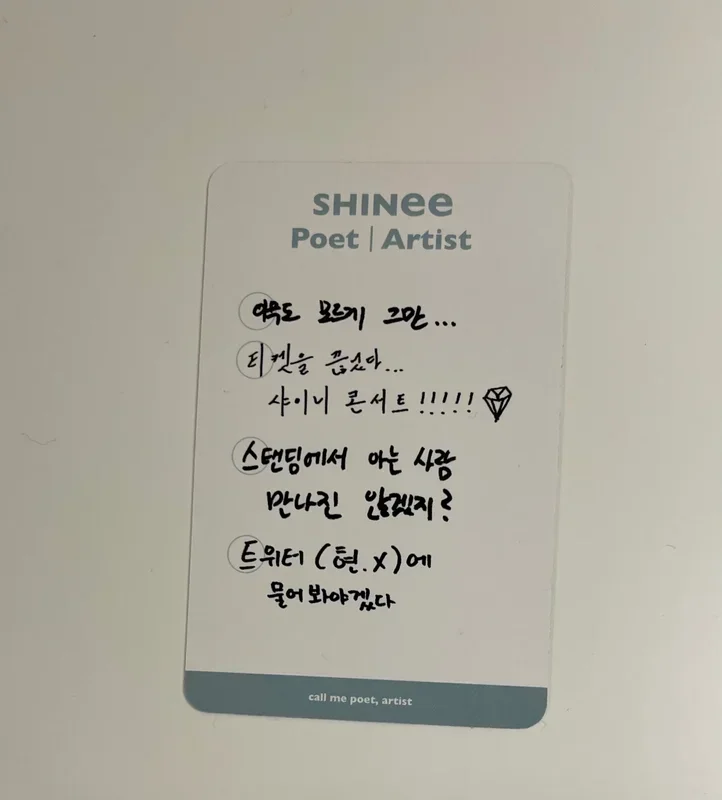 SHINee
Poet | Artist
아무도 모르게 그만...
티켓을 끊었다...
샤이니 콘서트!!!!!
스탠딩에서 아는 사람
만나진 않겠지?
트위터 (현.X)에
물어봐야겠다
call me poet, artist